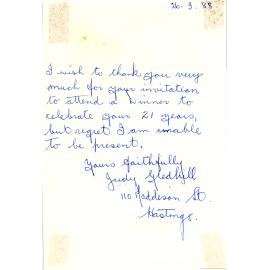 26.3.88
I wish to thank you very
much for your invitation
to attend a dinner to
celebrate your 21 years,
but regret I am unable
to be present.
Yours faithfully
Judy Gledhill
110 St.
Hastings.